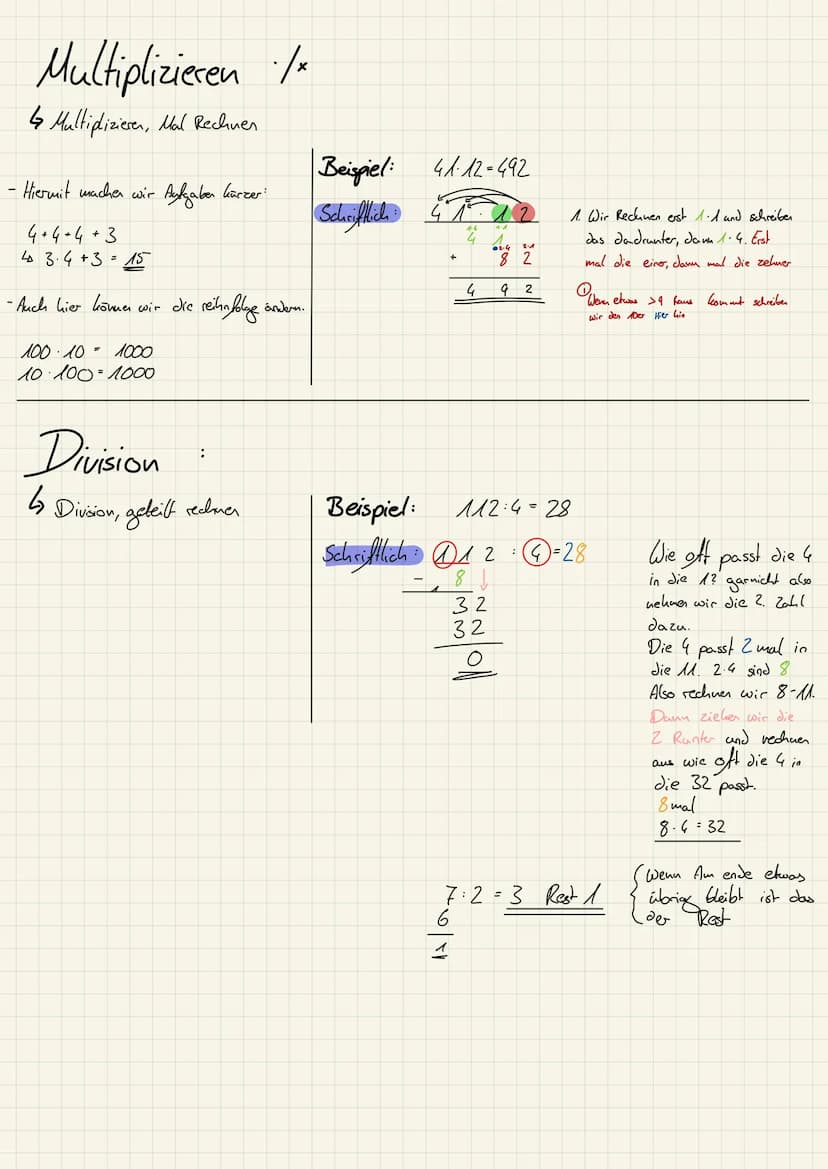 Multiplizieren ·/×
↳ Multiplizieren, Mal Rechnen
- Hiermit machen wir Aufgaben kürzer:
4+4+4+3
↳ 3·4+3=15
- Auch hier können wir die reihnfolge ändern.
100·10 = 1000
10·100=1000
Beispiel: 41·12=492
Schriftlich: 41·12
4 1
+ 8 2
4 9 2
1. Wir Rechnen erst 1·1 und schreiben
das dadrunter, dann 1·4. Erst
mal die einer, dann mal die zehner
! Wenn etwas >9 raus kommt schreiben
wir den 10er Hier hin
Division :
↳ Division, geteilt rechnen
Beispiel: 112:4=28
Schriftlich: 112:4=28
- 8 ↓
32
32
0
Wie oft passt die 4
in die 1? garnicht also
nehmen wir die 2. Zahl
dazu.
Die 4 passt 2 mal in
die 11. 2·4 sind 8
Also rechnen wir 8-11.
Dann ziehen wir die
2 Runter und rechnen
aus wie oft die 4 in
die 32 passt.
8 mal
8·4=32
7:2=3 Rest 1
6
1
Wenn Am ende etwas
übrig bleibt ist das
der Rest